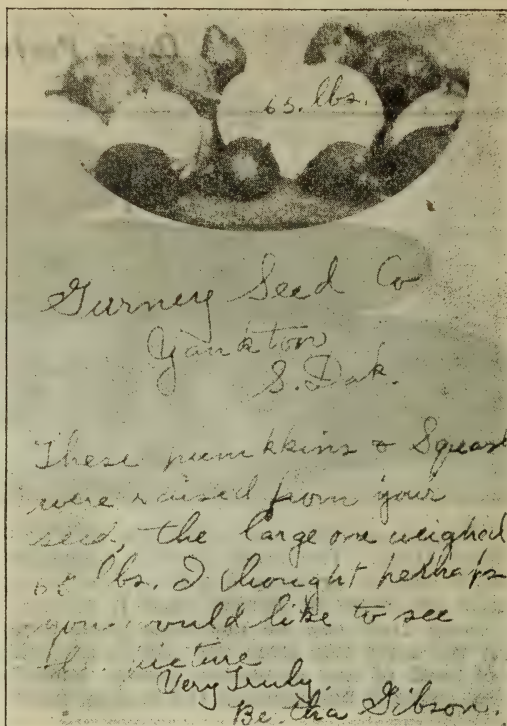 65. lbs.
Gurney Seed Co
Yankton
S. Dak.
These pumkkins & Squash
were raised from your
seed, the large one weighed
lbs. I thought perhaps
you would like to see
picture
Very Truly,
Be tha Gibson.